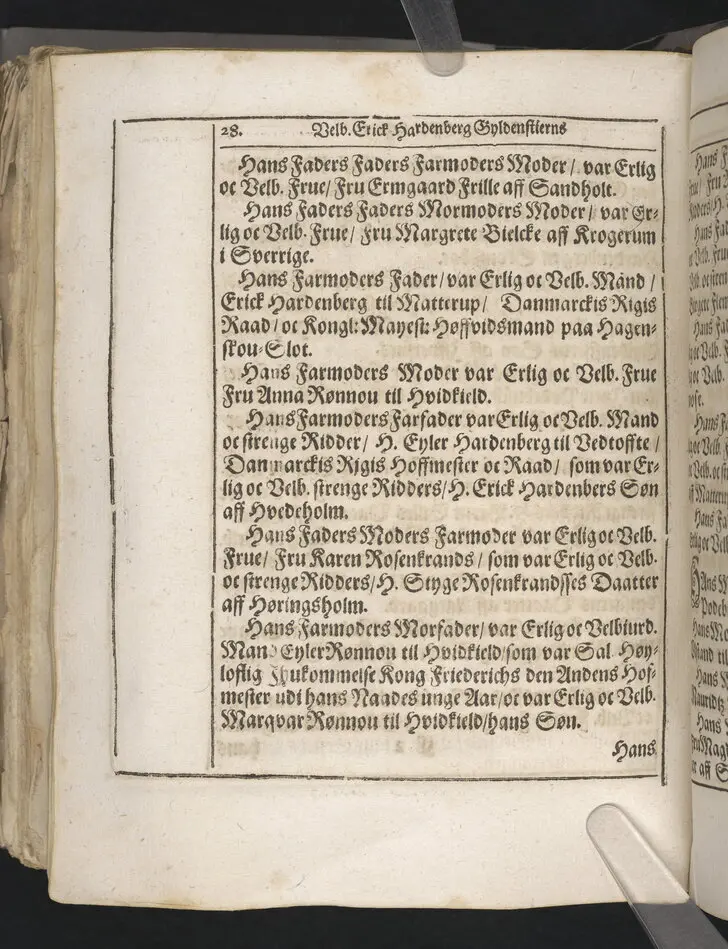 28. Velb. Erick Hardenberg Gyldenstierns
Hans Faders Faders Farmoders Moder / var Erlig
oc Velb. Frue / Fru Ermgaard Frille aff Sandholt.
Hans Faders Faders Mormoders Moder / var Er-
lig oc Velb. Frue / Fru Margrete Bielcke aff Krogerum
i Sverrige.
Hans Farmoders Fader / var Erlig oc Velb. Mand /
Erick Hardenberg til Matterup / Danmarckis Rigis
Raad / oc Kongl: Mayest: Høffvidsmand paa Hagen-
skou-Slot.
Hans Farmoders Moder var Erlig oc Velb. Frue
Fru Anna Rønnou til Hvidkield.
Hans Farmoders Farfader var Erlig oc Velb. Mand
oc strenge Ridder / H. Eyler Hardenberg til Vedtoffte /
Danmarckis Rigis Hoffmester oc Raad / som var Er-
lig oc Velb. strenge Ridders / H. Erick Hardenbers Søn
aff Hvedeholm.
Hans Faders Moders Farmoder var Erlig oc Velb.
Frue / Fru Karen Rosenkrands / som var Erlig oc Velb.
oc strenge Ridders / H. Styge Rosenkrandsses Daatter
aff Høringsholm.
Hans Farmoders Morfader / var Erlig oc Velbiurd.
Mand Eyler Rønnou til Hvidkield / som var Sal. Høy-
loflig Ihukommelse Kong Friederichs den Andens Hof-
mester udi hans Naades unge Aar / oc var Erlig oc Velb.
Marqvar Rønnou til Hvidkield / hans Søn.
Hans